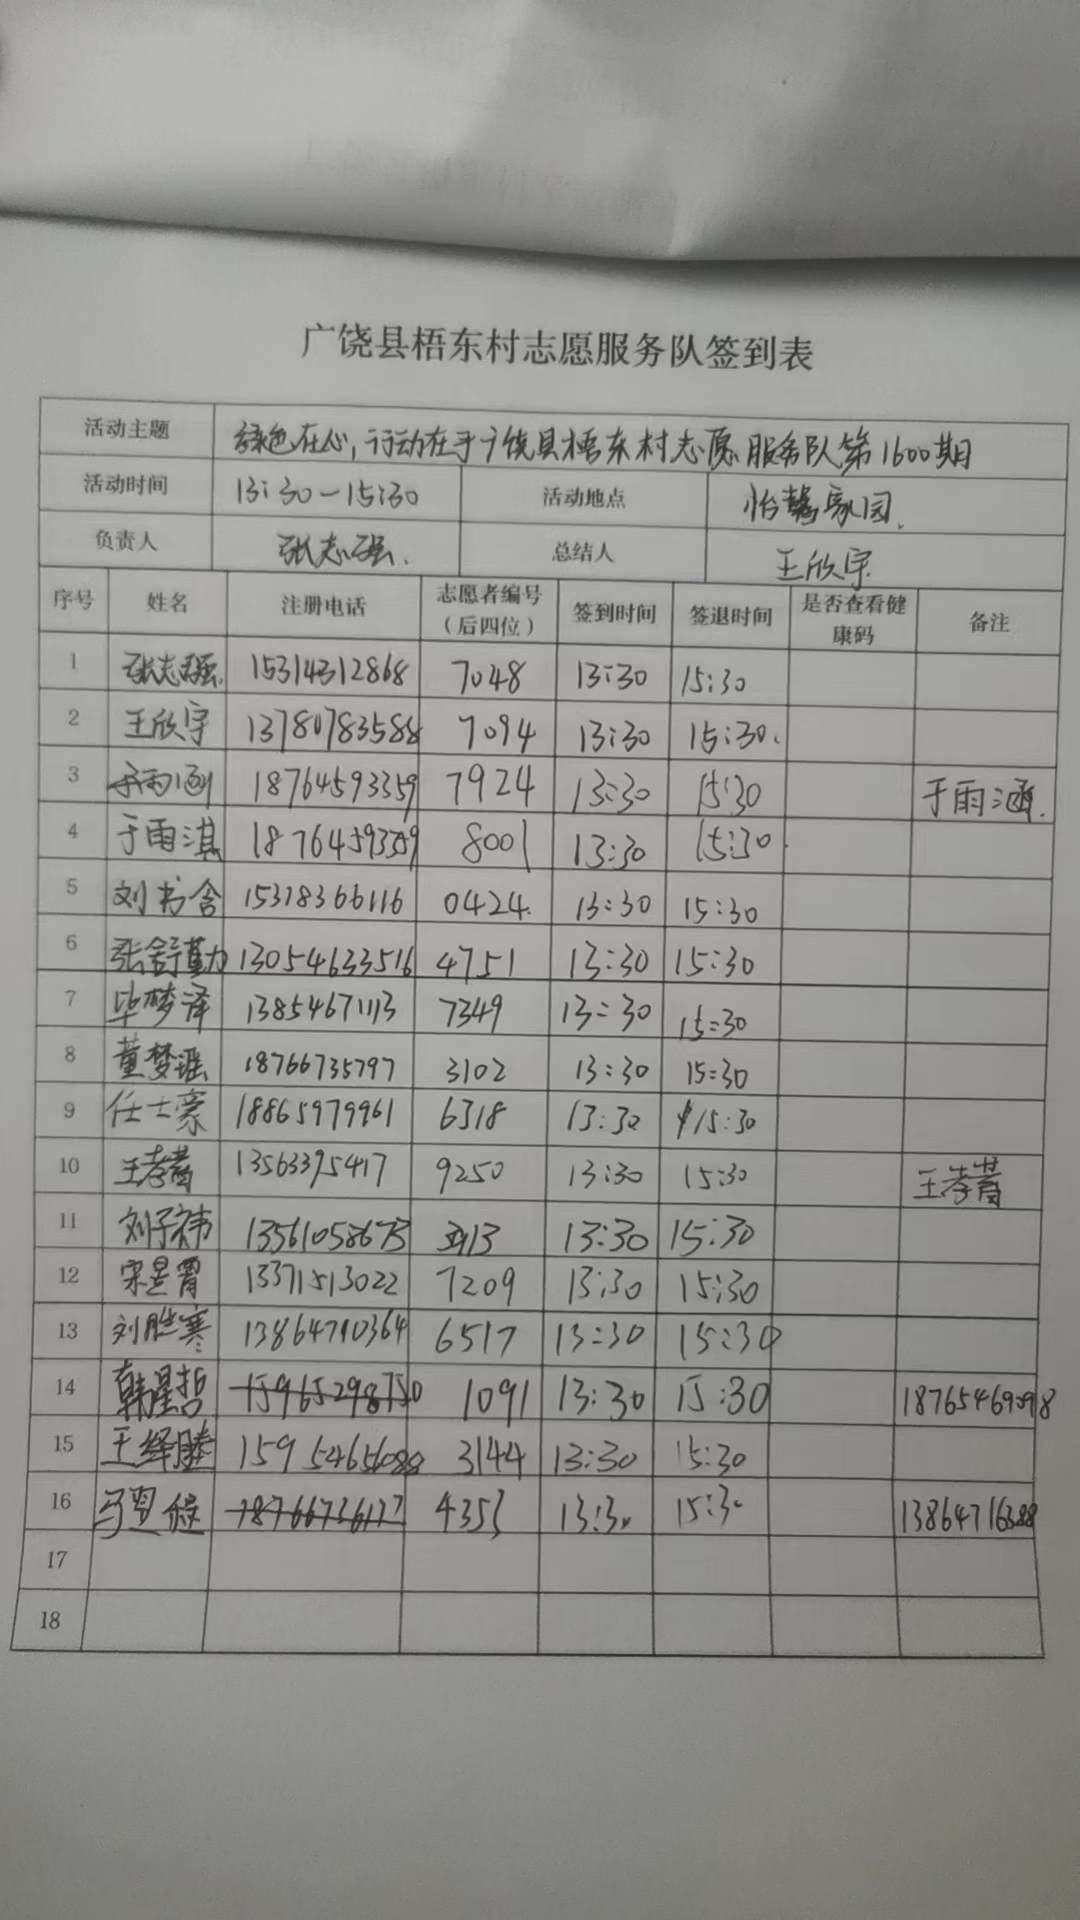 广饶县梧东村志愿服务队签到表
活动主题 绿色在心,行动在手广饶县梧东村志愿服务队第1600期
活动时间 13:30-15:30 活动地点 怡馨家园.
负责人 张志强. 总结人 王欣宇
序号 姓名 注册电话 志愿者编号（后四位） 签到时间 签退时间 是否查看健康码 备注
1 张志强. 15314312868 7048 13:30 15:30
2 王欣宇 13780783588 7094 13:30 15:30.
3 于雨涵 18764593359 7924 13:30 15:30 于雨涵.
4 于雨淇 18764593359 8001 13:30 15:30
5 刘书含 15318366116 0424. 13:30 15:30
6 张舒勤 13054633516 4751 13:30 15:30
7 毕梦泽 13854671113 7349 13:30 15:30
8 董梦瑶 18766735797 3102 13:30 15:30
9 任士豪 18865979961 6318 13:30 15:30
10 王孝菁 13563395417 9250 13:30 15:30 王孝菁
11 刘子祎 13561058673 13:30 15:30
12 宋昱霄 13371513022 7209 13:30 15:30
13 刘胜寒 13864710364 6517 13:30 15:30
14 韩星哲 15965298750 1091 13:30 15:30
15 王绎腾 15954656088 3144 13:30 15:30
16 18766736177 4353 13:30 15:30 13864716388
17
18